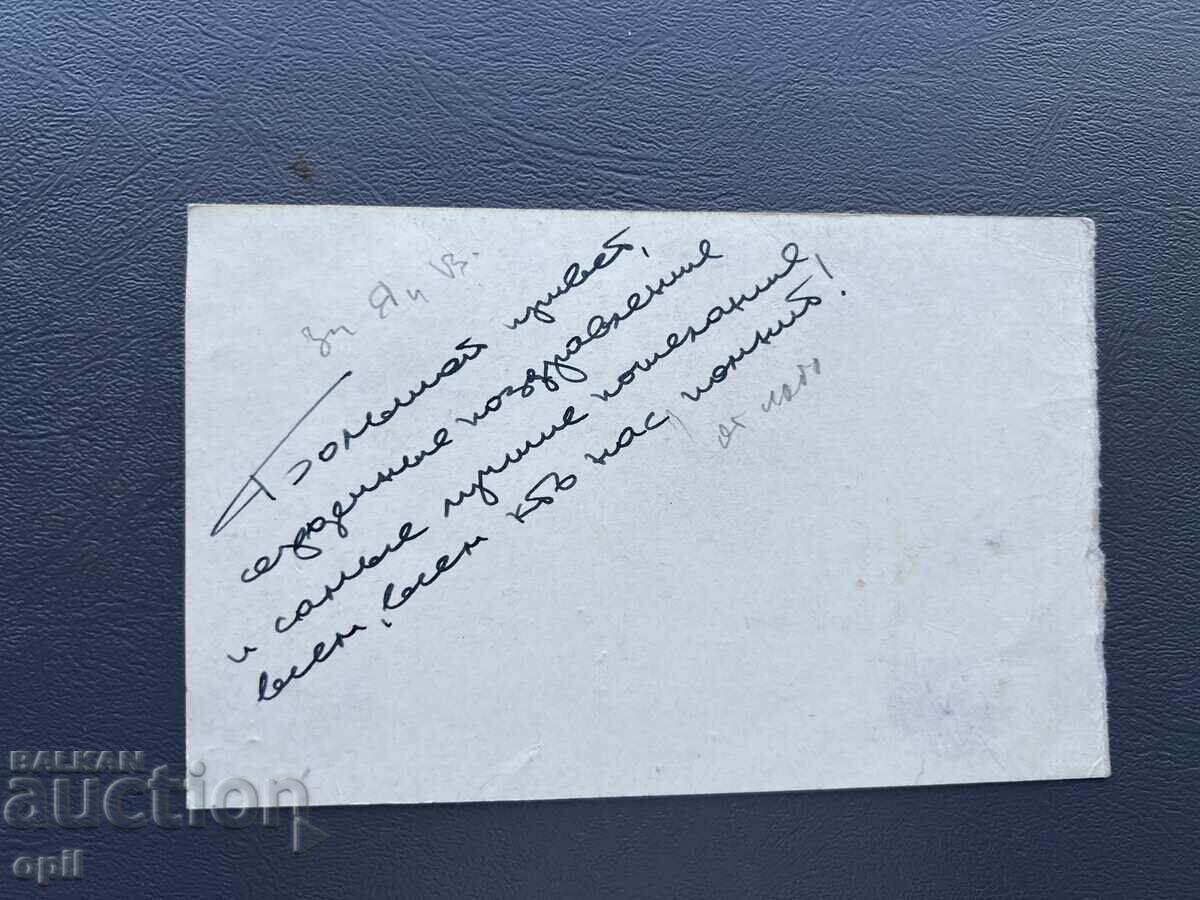 за Ян В.
Большой привет,
сердечные поздравления
и самые лучшие пожелания,
всем, всем кто нас помнит!
от
BALKAN
auction
opil